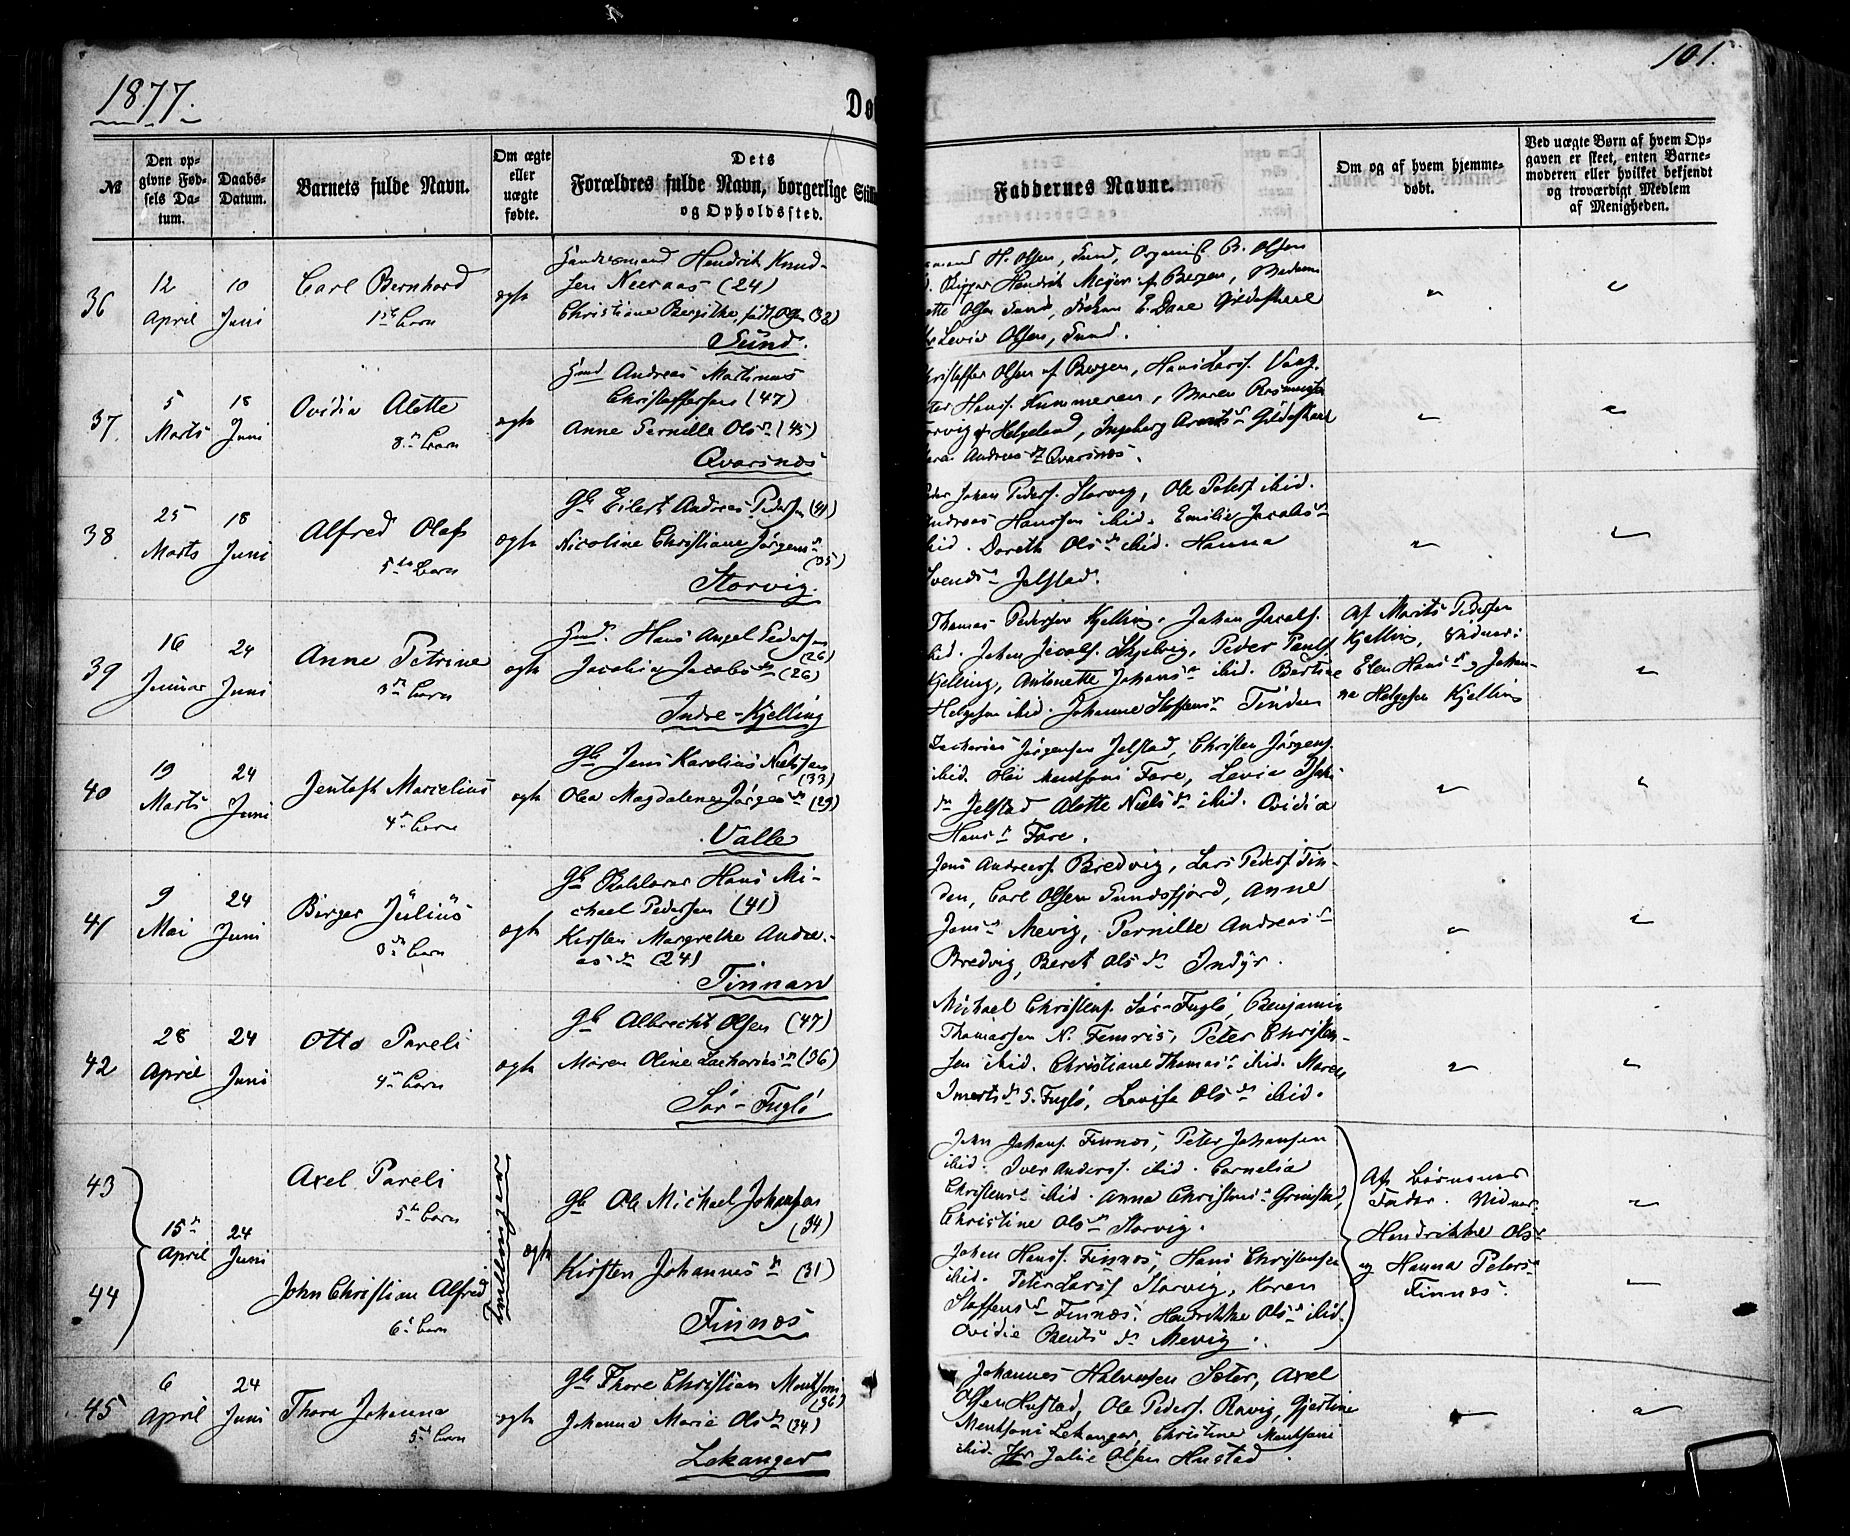 1877.
101.
№
Den op-
givne Fød-
sels Da-
tum.
Daabs-
Datum.
Barnets fulde Navn.
Om ægte
eller
uægte
fødte.
Dets
Forældres fulde Navn, borgerlige
og Opholdssted.
Faddernes Navne.
Om og af hvem hjemme-
døbt.
Ved uægte Børn af hvem Op-
gaven er skeet, enten Barne-
moderen eller hvilket bekjendt
og troværdigt Medlem
af Menigheden.
36
12
April
10
Juni
Carl Bernhard
1ste barn
ægte
Handesmand Hendrik Knud-
sen Neeraas (24)
Christiane Bergitha, født Olsen (32)
Sund.
H. Olsen, Sund, Organist B. Olsen
Hendrik Meyer af Bergen, Madam
Olsen Sund, E. Daae Gildeskaal
Levia Olsen, Sund.
37.
5
Marts
18
Juni
Ovidia Alette
8de barn
ægte
Gmd Andreas Matinus
Christoffersen (47)
Anne Pernille Olsd (45)
Qvarsnæs
Olsen af Bergen, Hans Larss. Vaag.
Hanss. Kummeren, Maren
Helgeland, Ingeborg Gildeskaal
Andreasd Qvarsnæs.
38
25
Marts
18
Juni
Alfred Olaf
5te barn
ægte
Gb Eilert Andreas Pedersen (41)
Nicoline Christiane Jørgensd
(35)
Storvig.
Johan Peders. Storvig, Ole Peters ibid.
Andreas Hanssen ibid. Emilie Jacobsd
ibid. Doreth Olsd ibid. Hanna
Svendsd Jelstad.
39
16
Januar
24
Juni
Anne Petrine
3de barn
ægte
Gmd. Hans Angel Pedersen
(26)
Jacobia Jacobsd (26)
Indre-Kjelling
Thomas Pedersen Kjelling, Johan Jacobs.
ibid. Johan Jacobs. Skjelvig, Peder Pauls
Kjelling, Antonette Johansd ibid. Bertine
Helgesen ibid. Johanne Steffensd Tinden
Af Marits Pedersen
Kjelling, Vidner:
Elen Hansd og Johan-
na Helgesen Kjelling
40
19
Marts
24
Juni
Jentoft Marcelius
4de barn
ægte
Gb Jens Karolius Nielsen
(33)
Olea Magdalena Jørgensd (29)
Valle
Zacharias Jørgensen Jelstad, Christen Jørgens.
ibid. Mentsoni Fore, Levia
Jelstad Alette Nielsd ibid. Ovidia
Hansd Fore.
41
9
Mai
24
Juni
Birger Júliús
3de barn
ægte
Gb Hans Mi-
chael Pedersen (41)
Kirsten Margrethe Andre-
asd (24)
Tinnan
Jens Andreass. Bredvig, Lars Peders Tin-
den, Carl Olsen Sundsfjord, Anne
Jensd Mevig, Pernille Andreasd
Bredvig, Beret Olsd Indyr.
42
28
April
24
Juni
Otto Pareli
4de barn
ægte
Gb Albrecht Olsen (47)
Maren Oline Zachariasd (36)
Sør-Fuglø
Michael Christens. Sør-Fuglø, Benjamin
Thomassen N. Femris, Peter Christen-
sen ibid. Christiane Thomasd ibid. Maren
Imertsd S. Fuglø, Lovise Olsd ibid.
43
44
15de
April
24
Juni
Axel Pareli
5te barn
John Christian Alfred
6te barn
Tvillinger
ægte
Gb Ole Michael Johansen
(34)
Kirsten Johannesd (31)
Finnæs
John Johans. Finnæs, Peter Johansen
ibid. Iver Anderss. ibid. Cornelia
Christensd ibid. Anna Christensd Grimstad,
Christine Olsd Storvig.
Johan Hanss. Finnæs, Hans Christensen
ibid. Peter Larss Storvig, Karen
Steffensd Finnæs, Hendrikke Olsd ibid.
Ovidie Bentsd Mevig.
Af Børnenes
Fader. Vidner:
Hendrikke Olsd
og Hanna Petersd
Finnæs.
45
6
April
24
Juni
Thora Johanna
5te barn
ægte
Gb Thore Christian Mentsoni
(36)
Johanna Marie Olsd (34)
Lekanger
Johannes Halvorsen Sæter, Axel
Olsen Hustad, Ole Peders. Rørvig, Gjertine
Mentsoni Lekanger, Christine Mentsoni
ibid. Julie Olsen Hustad.